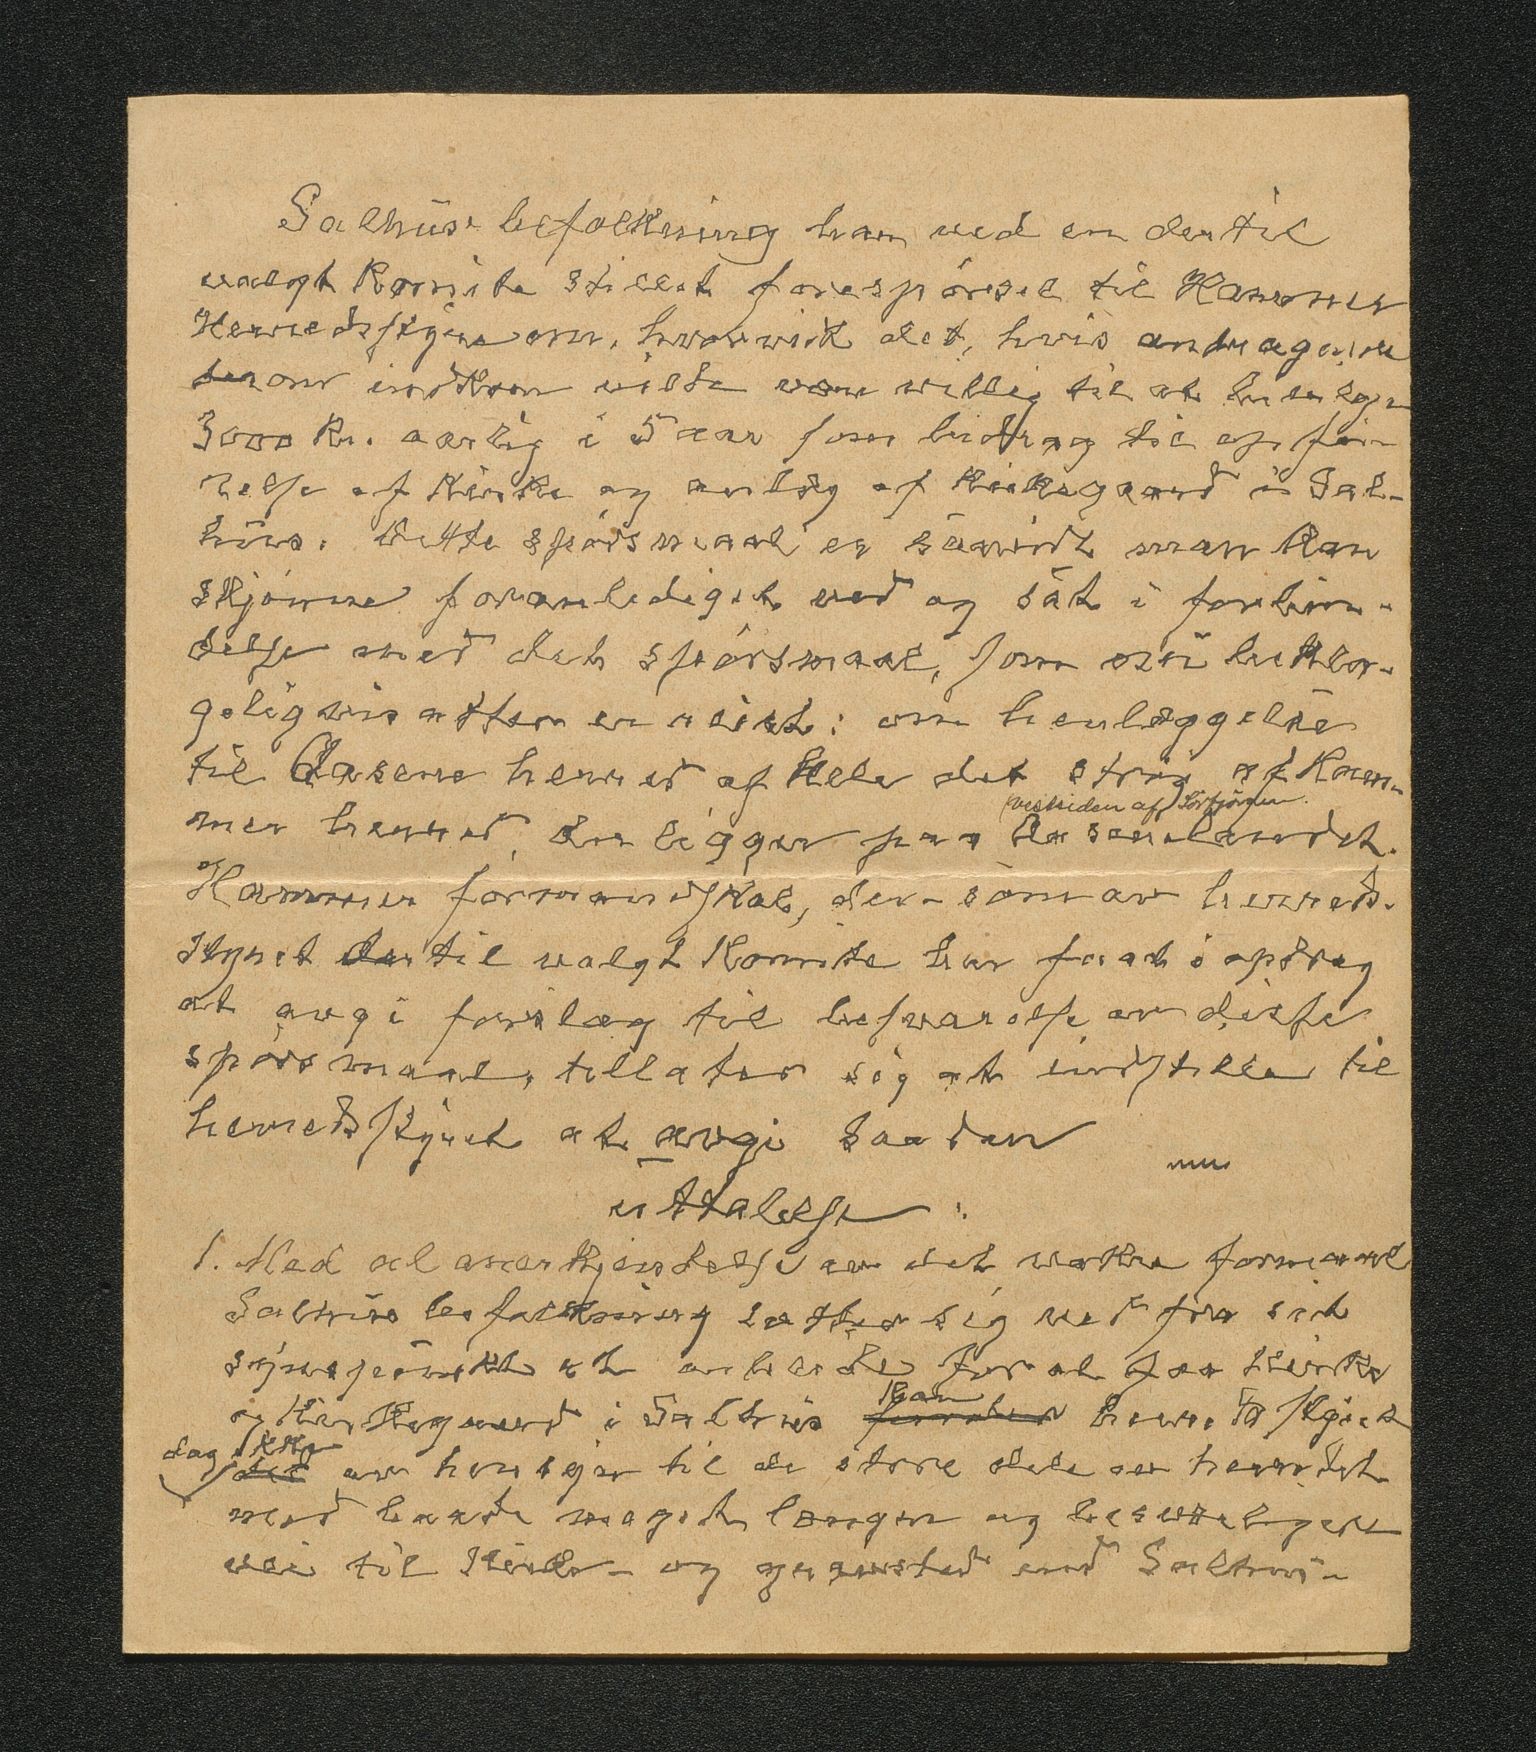 Salhus befolkning har ved en dertil
valgt komite stillet forespørsel til Hammer
Herredsstyre om, hvorvidt det, hvis andragende
derom indkom vilde være villig til at bevilge
3000 kr. aarlig i 5 aar som bidrag til opfø-
relse af kirke og anlæg af kirkegaard i Sal-
hus. Dette spørsmaal er saavidt man kan
skjønne foranlediget ved og sat i forbin-
delse med det spørsmaal, som nu beklage-
geligvis atter er reist: om henlæggelse
til Aasene herred af hele det strøg af Ham-
mer herred, der ligger paa vestsiden af Sørfjorden. Osterlandet.
Hammer formandskab, der som av herreds-
styret dertil valgt komite har faat i opdrag
at avgi forslag til besvarelse av disse
spørsmaal, tillater sig at indstille til
herredsstyret at avgi saadan
uttalelse:
1. Med al anerkjendelse av det vakre formaal
Salhus befolkning sætter sig ved fra sit
synspunkt at arbeide for at faa kirke
og kirkegaard i Salhus kan herredsstyret
dog ikke av hensyn til de større dele av herredet
med baade meget længere og besværligere
vei til kirke- og gravsted end Salhus-